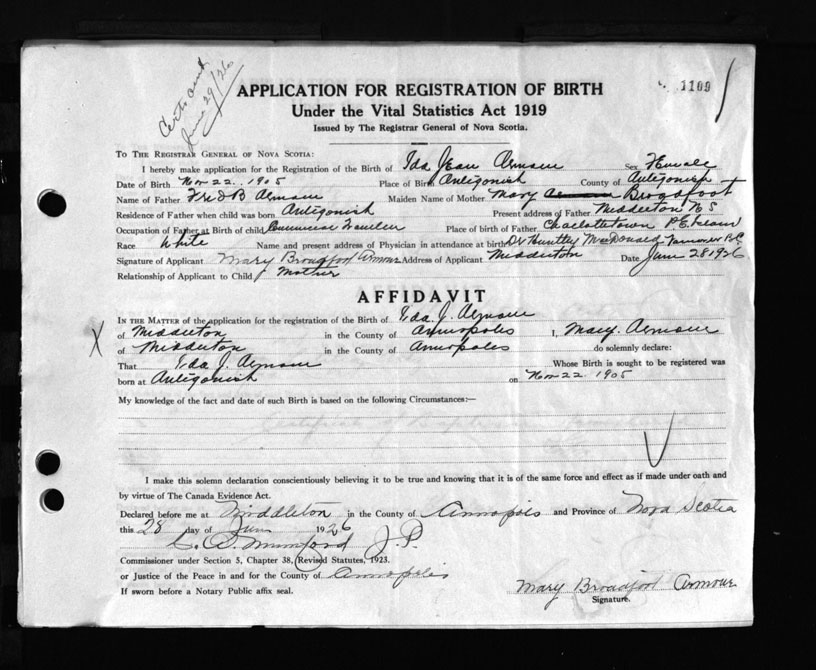 June 29/26
1109
APPLICATION FOR REGISTRATION OF BIRTH
Under the Vital Statistics Act 1919
Issued by The Registrar General of Nova Scotia.
TO THE REGISTRAR GENERAL OF NOVA SCOTIA:
I hereby make application for the Registration of the Birth of Ida Jean Armour Sex Female
Date of Birth Nov 22. 1905 Place of Birth Antigonish County of Antigonish
Name of Father Fred B Armour Maiden Name of Mother Mary Broadfoot
Residence of Father when child was born Antigonish Present address of Father Middleton N S
Occupation of Father at Birth of child Commercial Traveller Place of birth of Father Charlottetown P.E. Island
Race White Name and present address of Physician in attendance at birth Dr Huntley MacDonald Vancouver B.C.
Signature of Applicant Mary Broadfoot Armour Address of Applicant Middleton Date June 28 1926
Relationship of Applicant to Child Mother
AFFIDAVIT
IN THE MATTER of the application for the registration of the Birth of Ida. J. Armour
X of Middleton in the County of Annapolis I, Mary. Armour
of Middleton in the County of Annapolis do solemnly declare:
That Ida J. Armour Whose Birth is sought to be registered was
born at Antigonish on Nov 22. 1905
My knowledge of the fact and date of such Birth is based on the following Circumstances:—
I make this solemn declaration conscientiously believing it to be true and knowing that it is of the same force and effect as if made under oath and
by virtue of The Canada Evidence Act.
Declared before me at Middleton in the County of Annapolis and Province of Nova Scotia
this 28 day of June 1926
Mumford J. P.
Commissioner under Section 5, Chapter 38, (Revised Statutes, 1923.
or Justice of the Peace in and for the County of Annapolis
If sworn before a Notary Public affix seal.
Mary Broadfoot Armour
Signature.